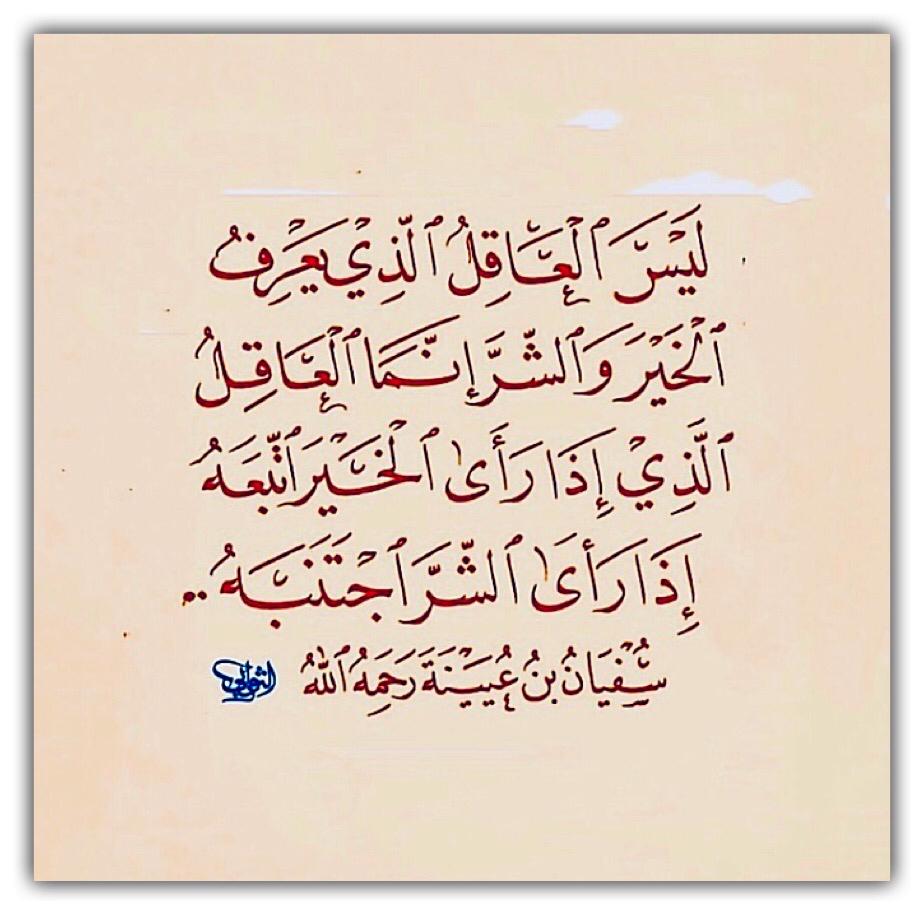 لَيْسَ ٱلْعَاقِلُ ٱلَّذِيْ يَعْرِفُ
ٱلْخَيْرَ وَٱلشَّرَّ إِنَّمَا ٱلْعَاقِلُ
ٱلَّذِيْ إِذَا رَأَىٰ ٱلْخَيْرَ اتَّبَعَهُ
إِذَا رَأَىٰ ٱلشَّرَّ اجْتَنَبَهُ ..
سُفْيَانُ بنُ عُيَيْنَةَ رَحِمَهُ ٱللّٰهُ